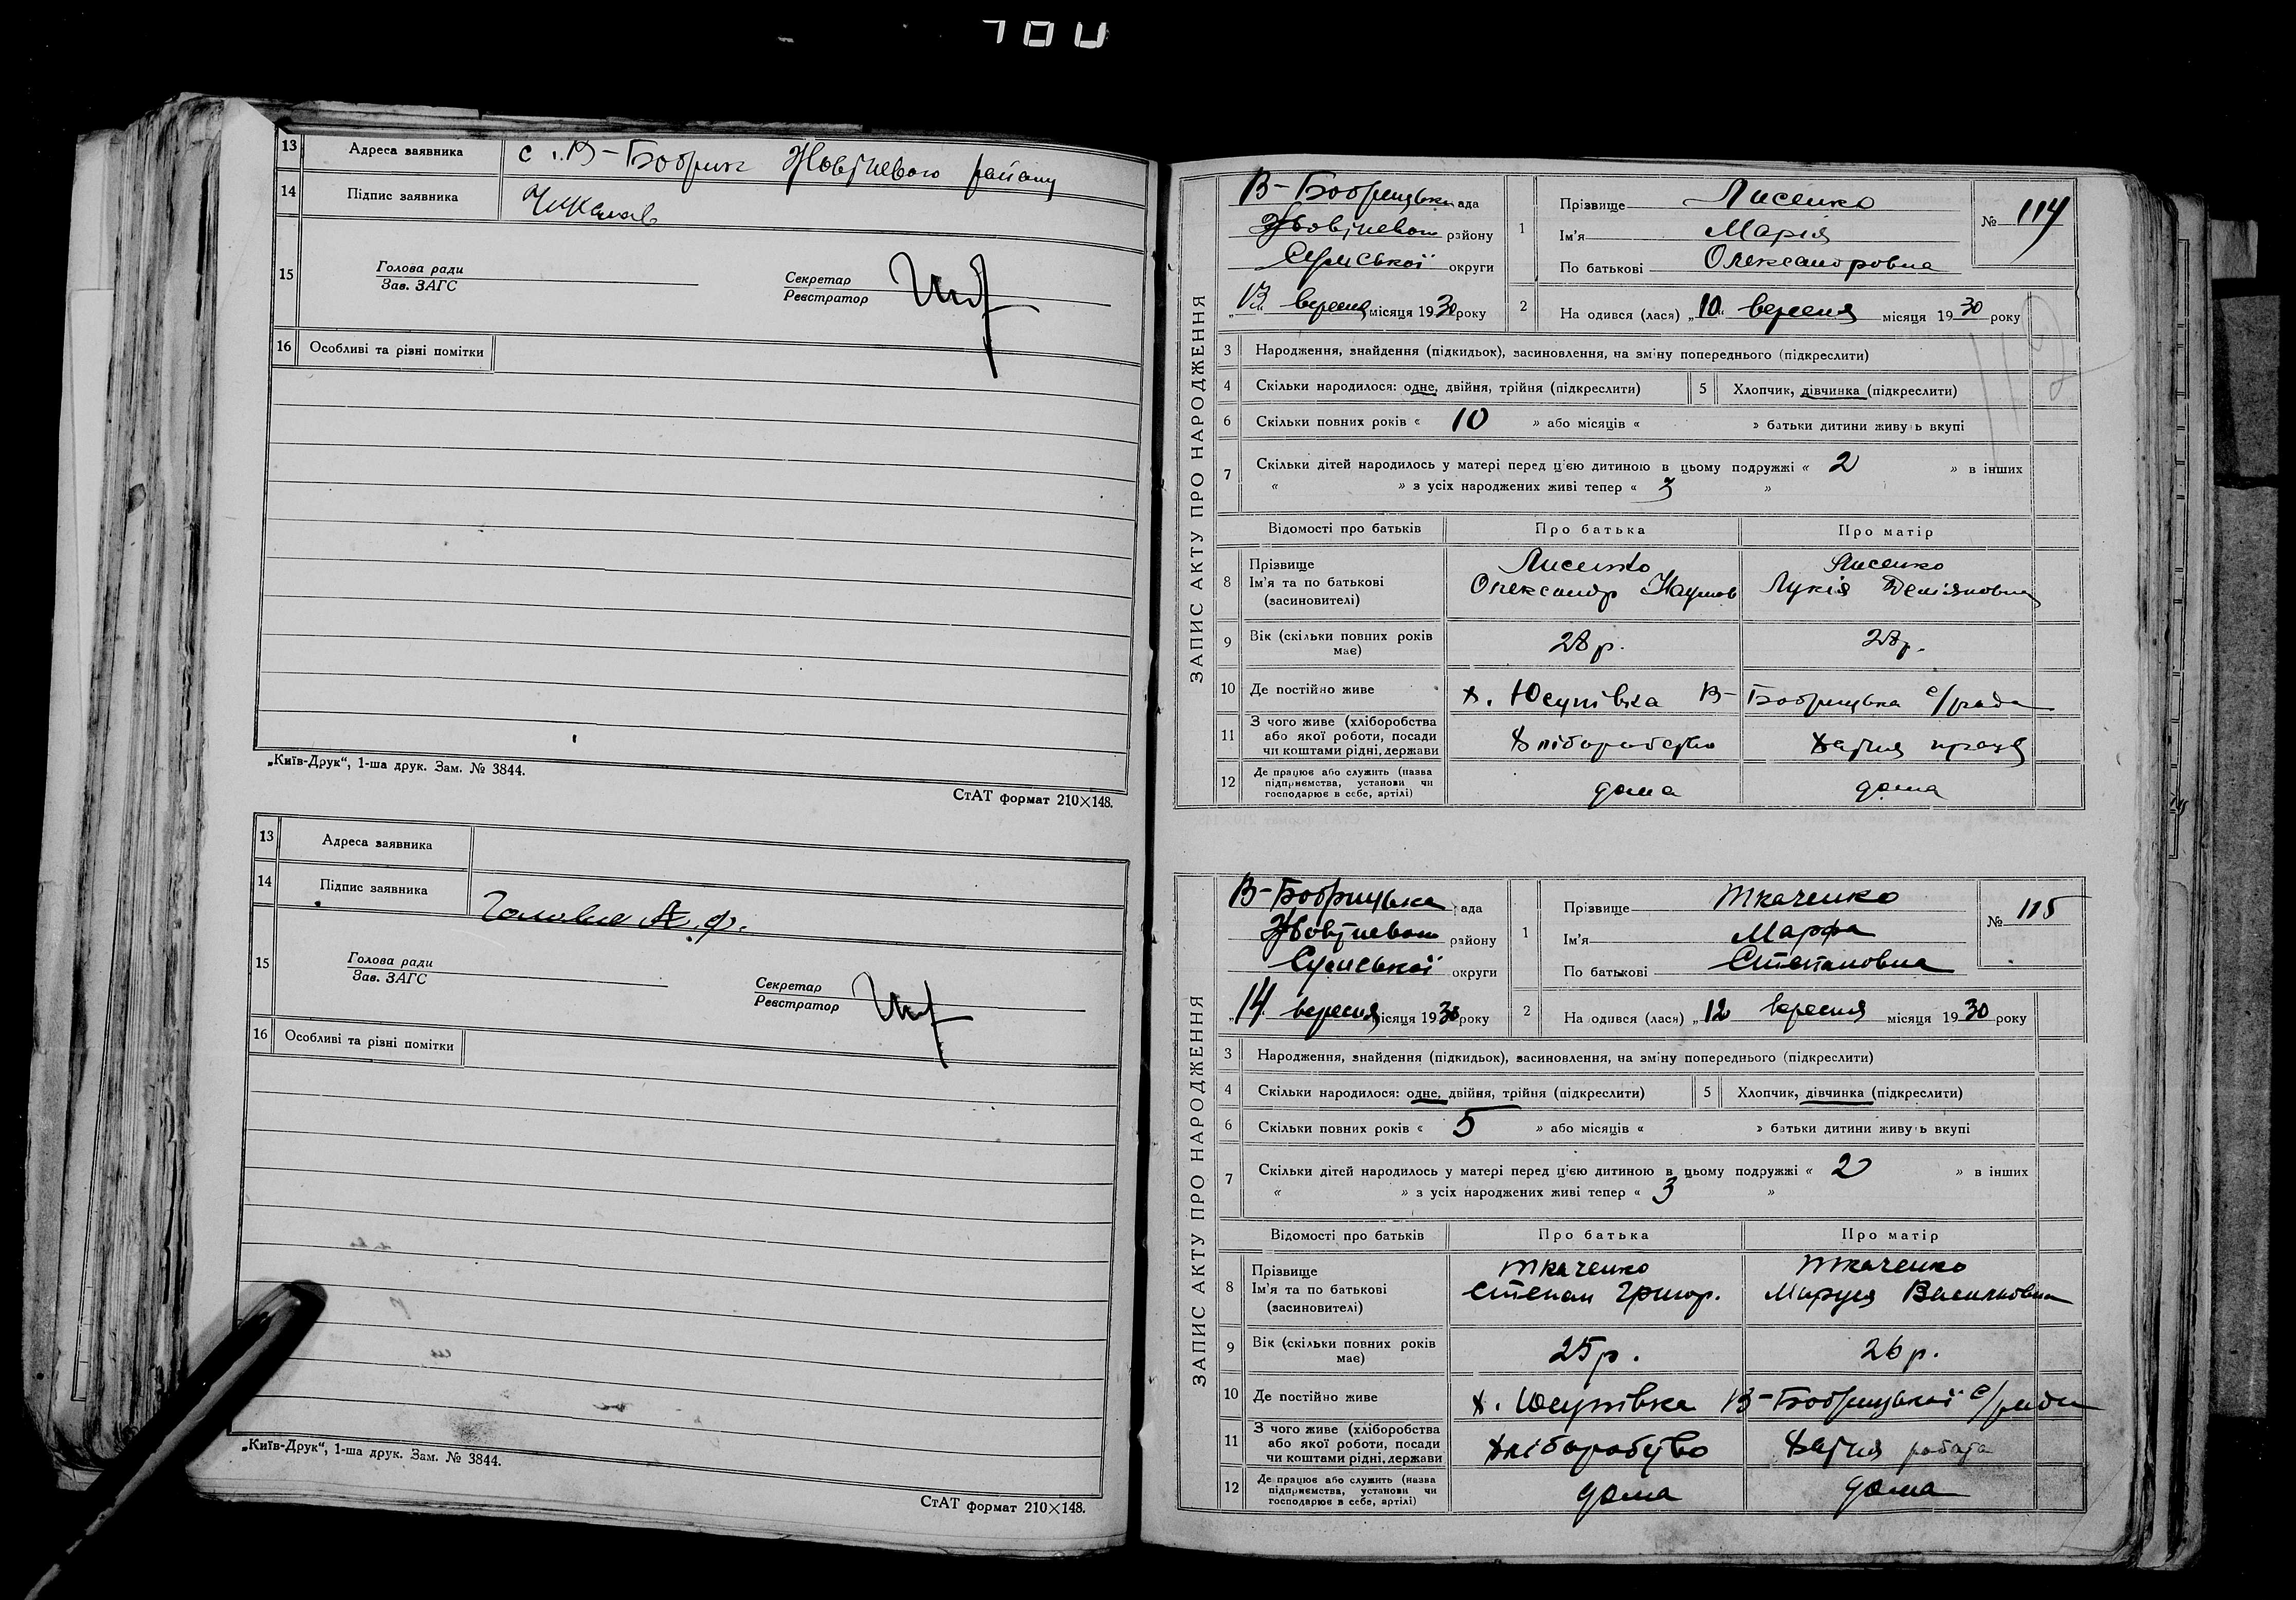 13 Адреса заявника с. В-Бобрик Жовтневого району
14 Підпис заявника
15 Голова ради
Зав. ЗАГС
Секретар
Реєстратор
16 Особливі та різні помітки
„Київ-Друк“, 1-ша друк. Зам. № 3844.
СтАТ формат 210×148.
13 Адреса заявника
14 Підпис заявника Головня А. Ф.
15 Голова ради
Зав. ЗАГС
Секретар
Реєстратор
16 Особливі та різні помітки
„Київ-Друк“, 1-ша друк. Зам. № 3844.
СтАТ формат 210×148.
ЗАПИС АКТУ ПРО НАРОДЖЕННЯ
В-Бобрицька рада
Жовтневого району
Сумської округи
„13“ вересня місяця 1930 року
1 Прізвище Лисенко
Ім'я Марія
По батькові Олександровна
№ 114
2 Народився (лася) „10“ вересня місяця 1930 року
3 Народження, знайдення (підкидьок), засиновлення, на зміну попереднього (підкреслити)
4 Скільки народилося: одне, двійня, трійня (підкреслити) 5 Хлопчик, дівчинка (підкреслити)
6 Скільки повних років « 10 » або місяців « » батьки дитини живуть вкупі
7 Скільки дітей народилось у матері перед ц'єю дитиною в цьому подружжі « 2 » в інших
« » з усіх народжених живі тепер « 3 »
Відомості про батьків Про батька Про матір
8 Прізвище Лисенко Лисенко
Ім'я та по батькові Олександр Наумов Лукія Демʼяновна
(засиновителі)
9 Вік (скільки повних років має) 28 р. 28 р.
10 Де постійно живе х. Юсупівка В-Бобрицька с/рада
11 З чого живе (хліборобства
або якої роботи, посади
чи коштами рідні, держави хліборобство хатня праця
12 Де працює або служить (назва
підприємства, установи чи
господарює в себе, артілі) дома дома
ЗАПИС АКТУ ПРО НАРОДЖЕННЯ
В-Бобрицька рада
Жовтневого району
Сумської округи
„14“ вересня місяця 1930 року
1 Прізвище Ткаченко
Ім'я Марфа
По батькові Степановна
№ 115
2 Народився (лася) „12 вересня місяця 1930 року
3 Народження, знайдення (підкидьок), засиновлення, на зміну попереднього (підкреслити)
4 Скільки народилося: одне, двійня, трійня (підкреслити) 5 Хлопчик, дівчинка (підкреслити)
6 Скільки повних років « 5 » або місяців « » батьки дитини живуть вкупі
7 Скільки дітей народилось у матері перед ц'єю дитиною в цьому подружжі « 2 » в інших
« » з усіх народжених живі тепер « 3 »
Відомості про батьків Про батька Про матір
8 Прізвище Ткаченко Ткаченко
Ім'я та по батькові Степан Григор. Маруся Васильовна
(засиновителі)
9 Вік (скільки повних років має) 25 р. 26 р.
10 Де постійно живе х. Юсупівка В-Бобрицької с/ради
11 З чого живе (хліборобства
або якої роботи, посади
чи коштами рідні, держави хліборобство хатня робота
12 Де працює або служить (назва
підприємства, установи чи
господарює в себе, артілі) дома дома